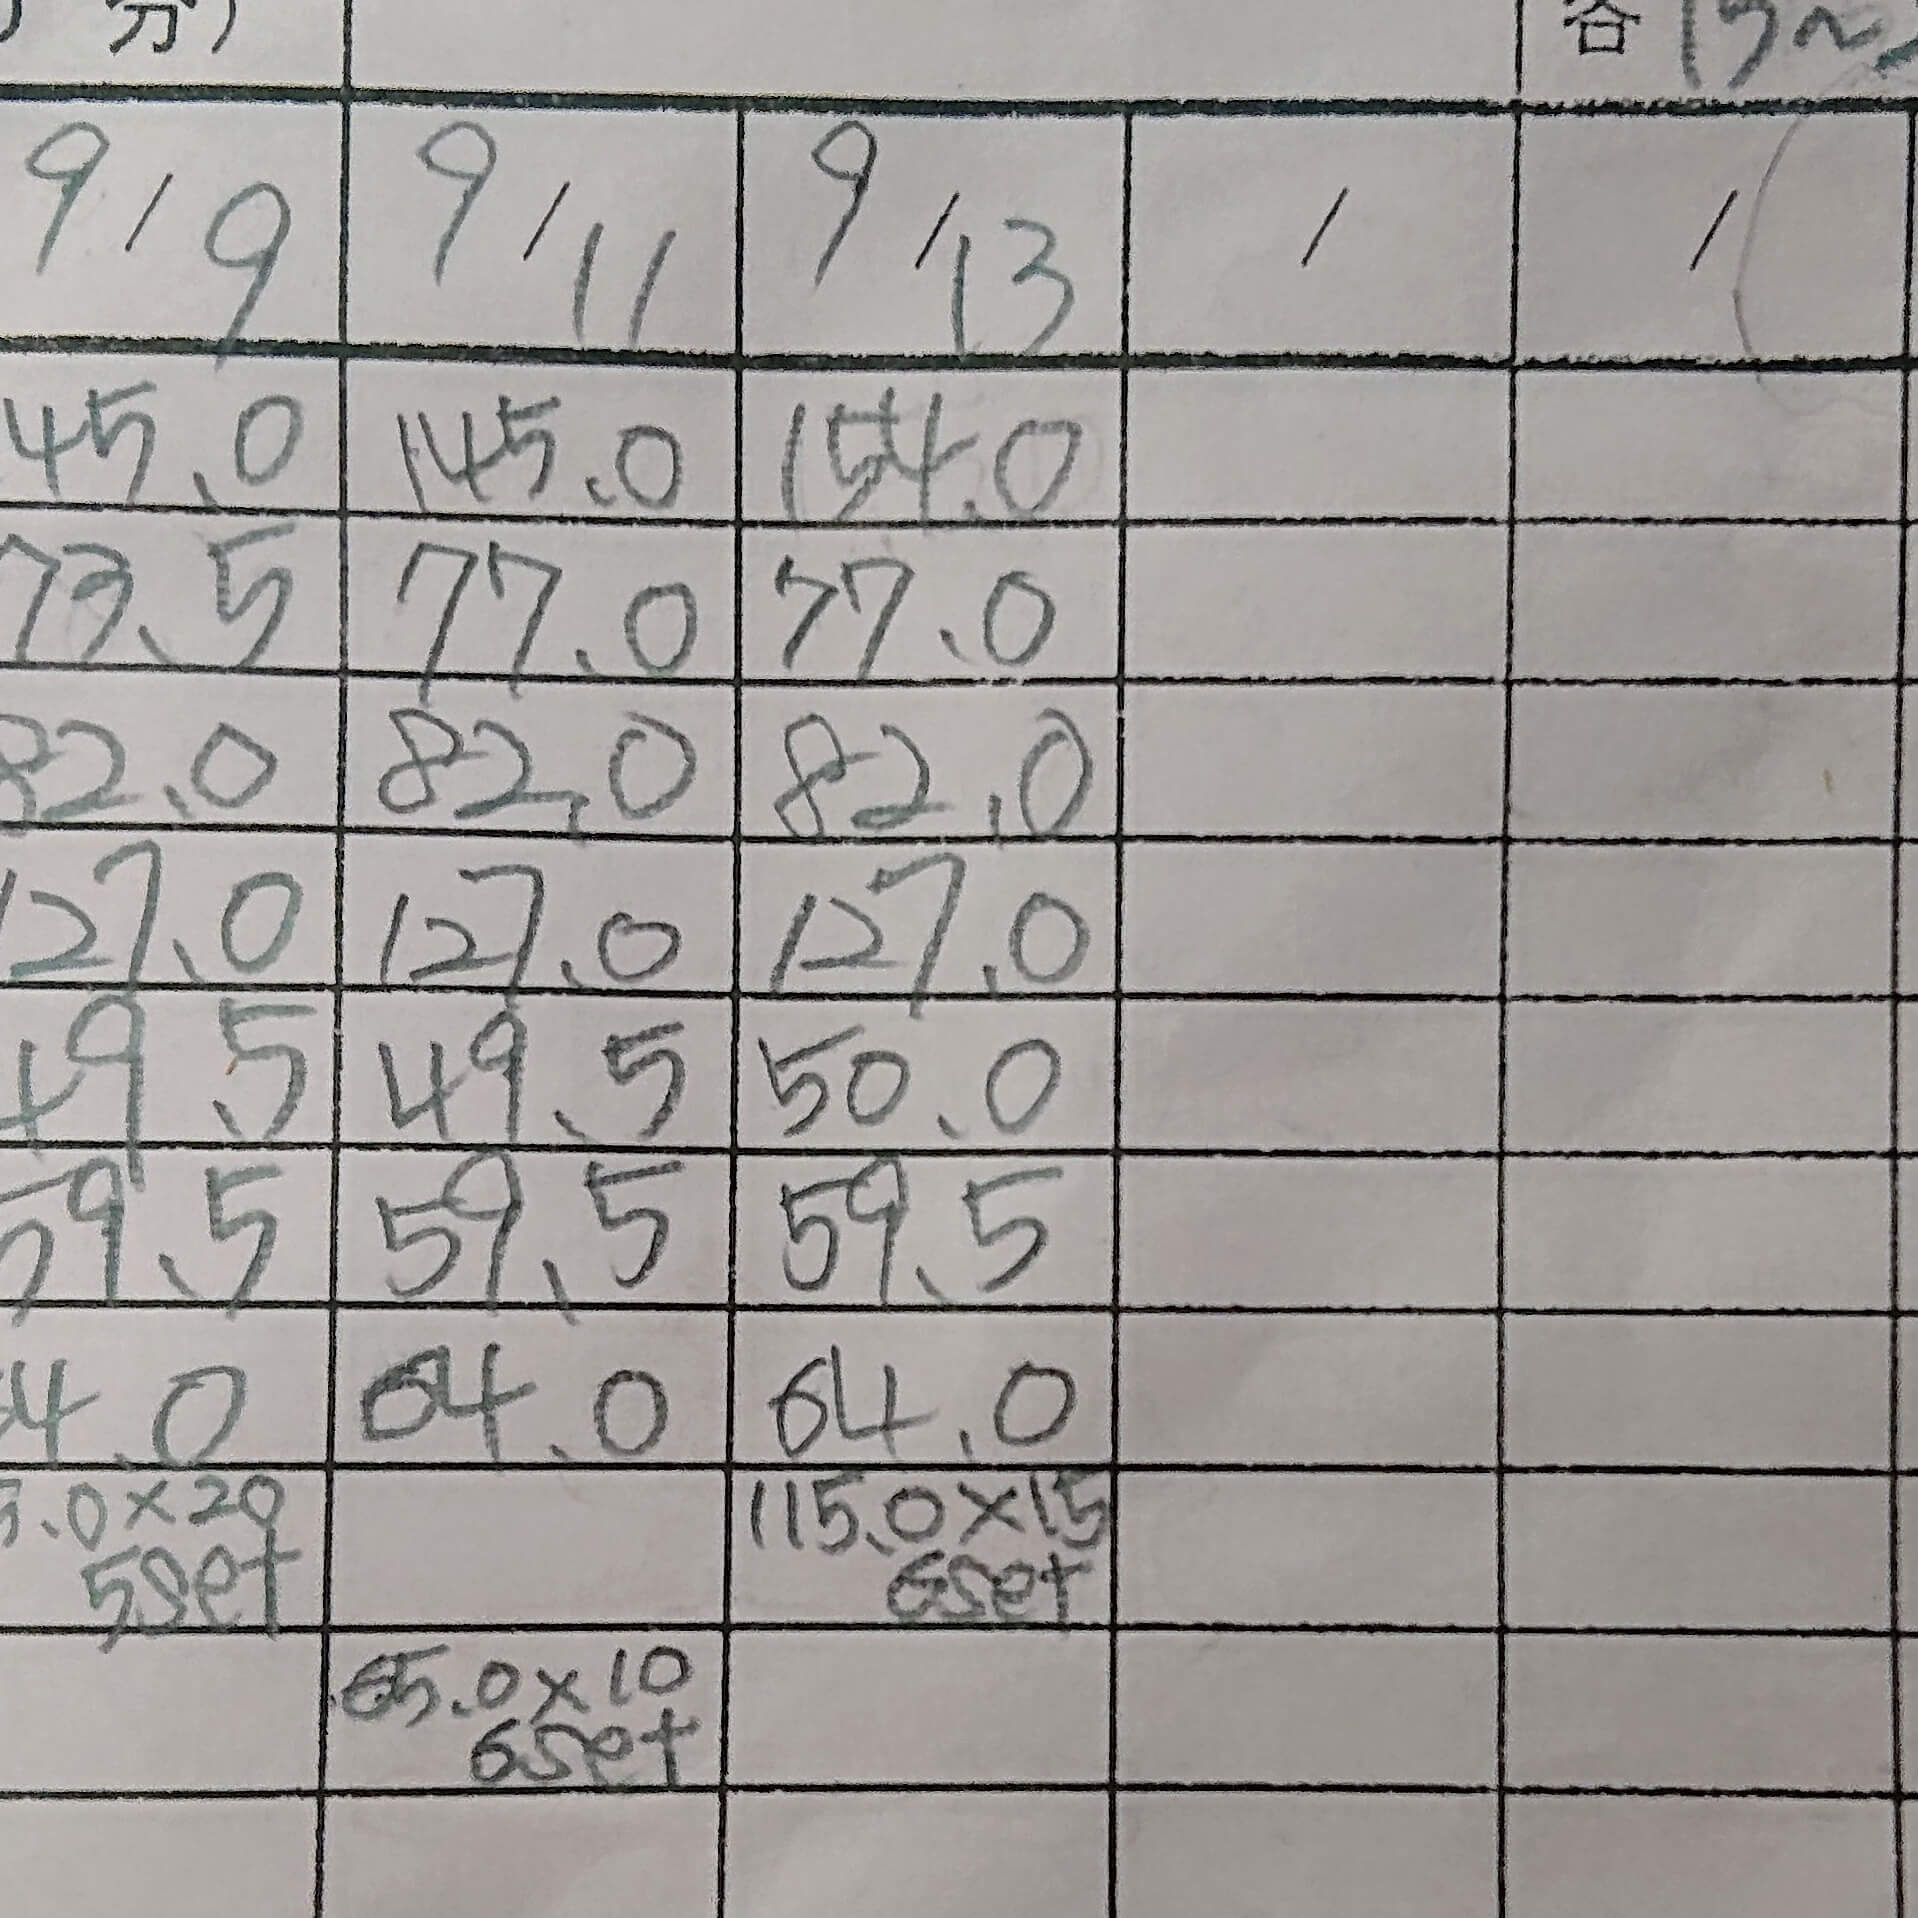 分) 各 15~
9/9 9/11 9/13 / /
45.0 145.0 154.0
73.5 77.0 77.0
82.0 82.0 82.0
127.0 127.0 127.0
49.5 49.5 50.0
59.5 59.5 59.5
4.0 64.0 64.0
5.0×20 115.0×15
5set 6set
65.0×10
6set